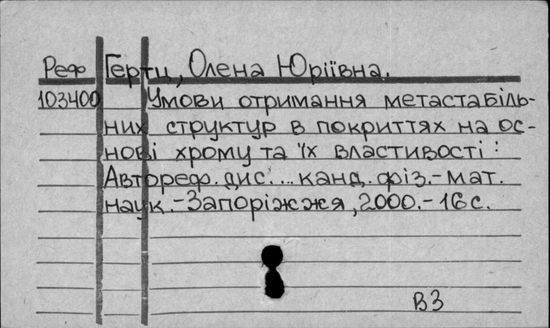 Реф Гертц, Олена Юріївна.
103400 Умови отримання метастабіль-
них структур в покриттях на ос-
нові хрому та їх властивості :
Автореф. дис. ... канд. фіз.-мат.
наук. - Запоріжжя, 2000. - 16 с.
ВЗ